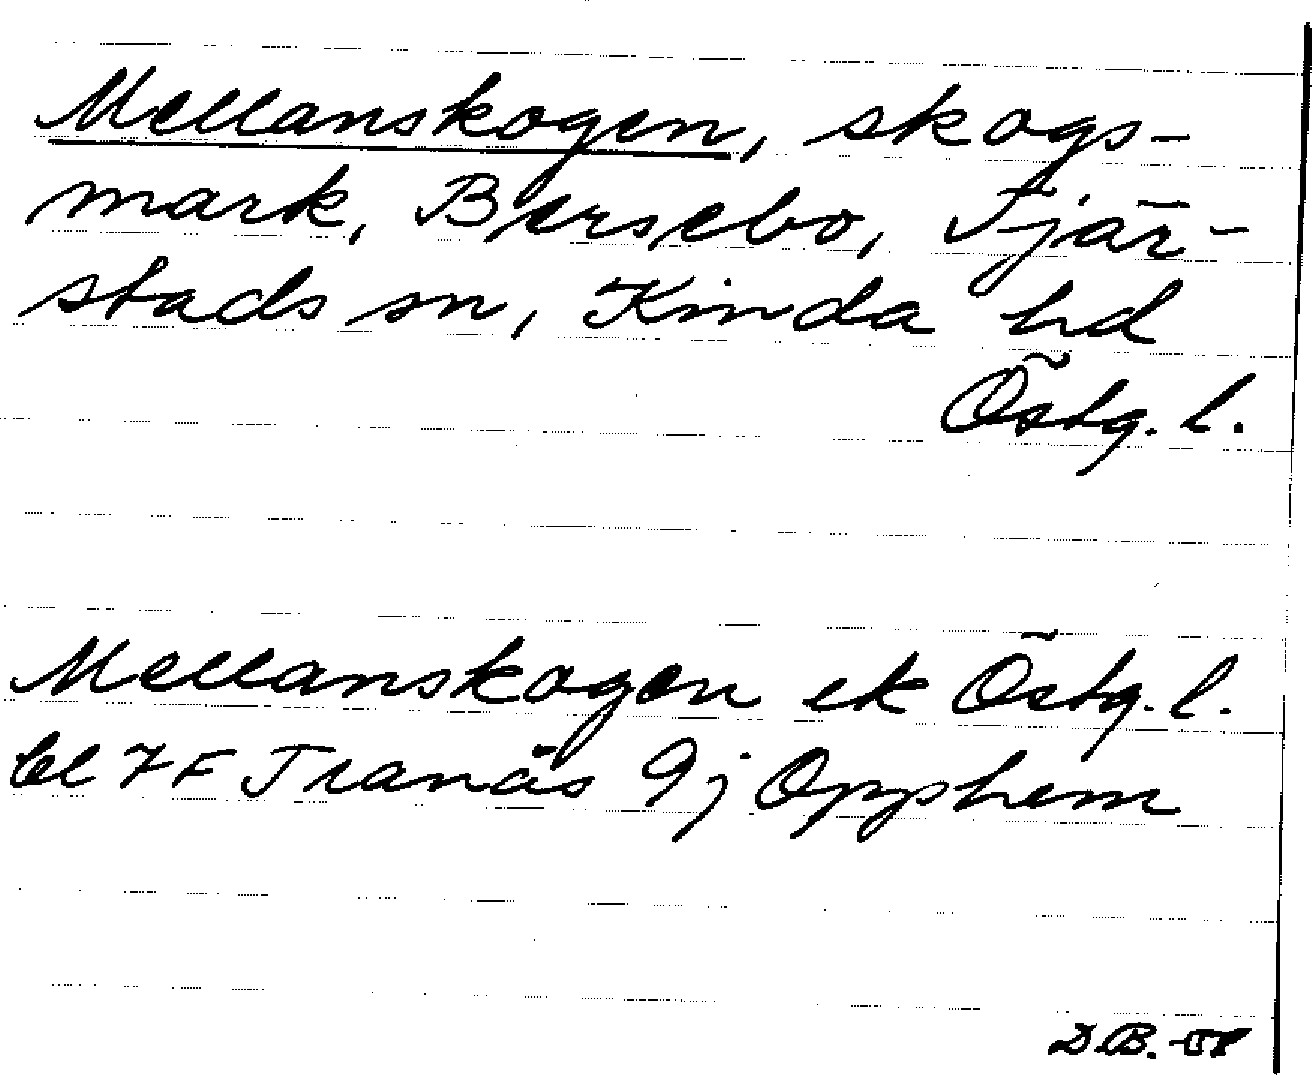 Mellanskogen, skogs-
mark, Bersebo, Tjär-
stads sn, Kinda hd
Östg. l.
Mellanskogen ek Östg. l.
bl 7 F Tranås 9j Opphem
D.B. -58